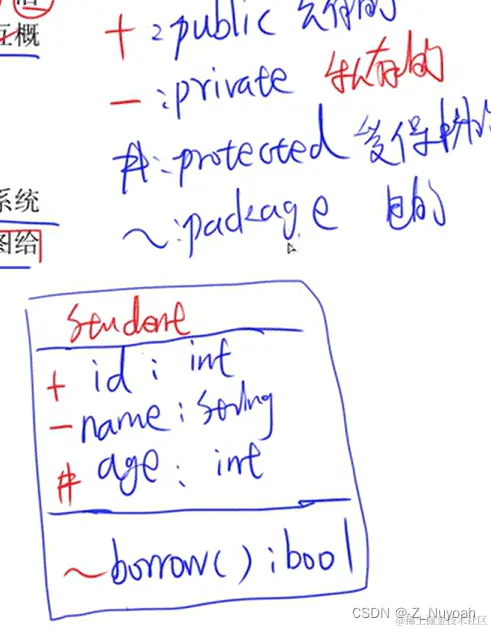 互概
+ : public 公有的
- : private 私有的
#: protected 受保护的
系统
~: package 包的
图给
Student
+ id : int
- name : String
# age : int
~borrow() : bool
CSDN @Z_Nuyoah
@稀土掘金技术社区